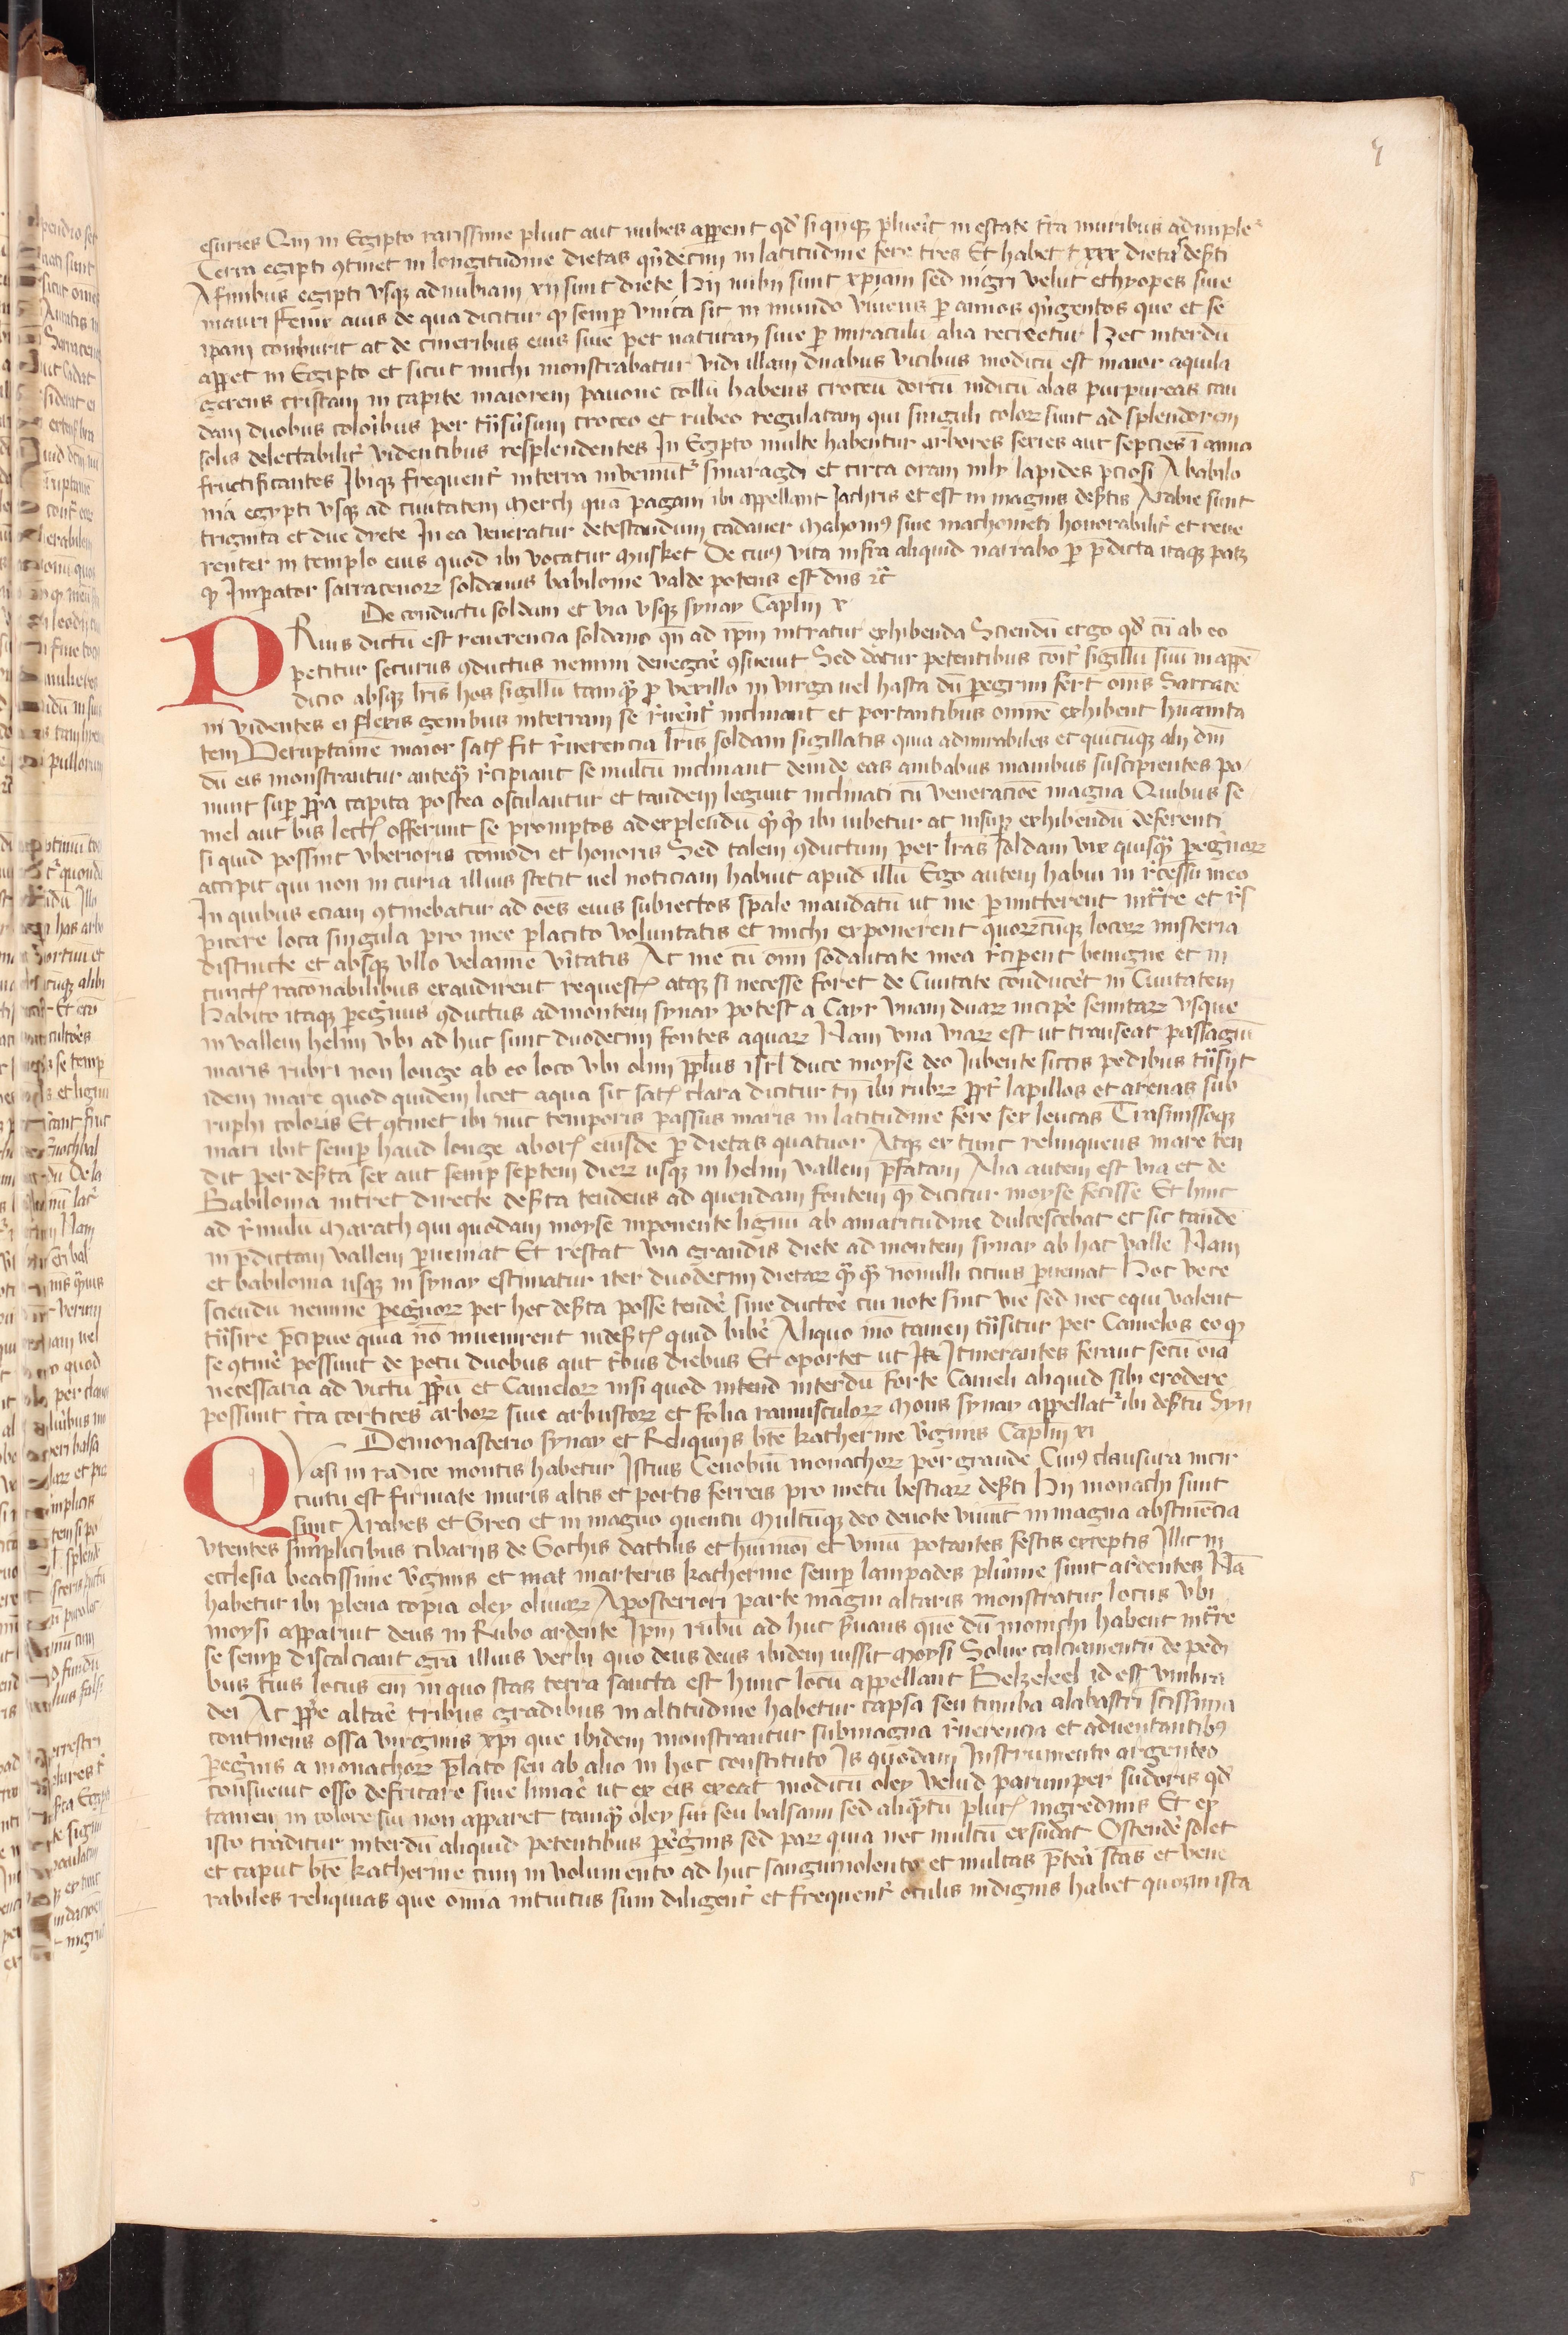 esuries Qm in Egipto rarissime pluit aut nubes apparent qd' si qn̄q; plueit in estate tra muribus adimple
Terra egipti ꝯtinet in longitudine dietas qndecim in latitudine fere tres Et habet t xxx dietas des̄ti
A finibus egipti vsq; ad nubiam xij sunt diete Hij nubij sunt xp̄iani sed nigri velut ethyopes siue
mauri Fenix auis de qua dicitur qp semp vnica sit in mundo viuens p annos qngentos que et se
ipam comburit at de cineribus eius siue per naturam siue p miraculū alia recreetur Hec interdū
appet in Egipto et sicut michi monstrabatur vidi illam duabus vicibus modicū est maior aquila
gerens cristam in capite maiorem pauone collū habens croceū dorsū indicū alas purpureas cau
dam duobus coloibus per tnsūsum croceo et rubeo regulatam qui singuli color sunt ad splendorem
solis delectabilit videntibus resplendentes In Egipto multe habentur arbores sexies aut septies ī anno
fructificantes Ibiq; frequent in terra inveniūt smaragdi et circa oram nily lapides pciosi A babilo
nia egypti vsq; ad ciuitatem Merch quā pagani ibi appellant Iachris et est in magnis des̄tis Arabie sunt
triginta et due diete In ea veneratur detestandum cadauer Mahom siue machometi honorabilit et reue
renter in templo eius quod ibi vocatur Musket De cui vita infra aliquid narrabo p pdicta itaq; patz
qp Impator sarracenor soldanus babilonie valde potens est dns rc
De conductu soldani et via vsq; synay Caplm x
PRius dictū est reuerencia soldano qn ad ipm intratur exhibenda Sciendū ergo qd' cū ab eo
petitur securus ꝯductus nemini denegare ꝯsueuit Sed datur petentibus coit sigillū suū in appe
dicio absq; lris hos sigillū tamq pro vexillo in virga uel hasta dū pegrini fert oms Sarrace
ni videntes ei flexis genibus in terram se r̄uēnt inclinant et portantibus omnē exhibent huāita
tem Veruptamē maior sat fit r̄uerencia lris soldani sigillatis quia admirabiles et quicūq; alij dm̄
dū eis monstrantur anteq̄ r̄cipiant se multū inclinant deinde eas ambabus manibus suscipientes po
nunt sup pp̄a capita postea osculantur et tandem legunt inclinati cū veneracōe magna Quibus se
mel aut bis lect offerunt se promptos ad explendū q̄q̄ ibi iubetur at insup exhibendū deferenti
si quid possint vberioris cōmodi et honoris Sed talem ꝯductum per lras soldani vix quisq̄ pegnor
accipit qui non in curia illius stetit uel noticiam habuit apud illū Ego autem habui in r̄cessu meo
In quibus eciam ꝯtinebatur ad oēs eius subiectos spale mandatū ut me pmitterent intre et r̄s
picere loca singula pro mee placito voluntatis et michi exponerent quorcūq; locor misteria
distincte et absq; vllo velamine vitatis Ac me cū omi sodalitate mea r̄ciperent benigne et in
cunct raconabilibus exaudirent request atq; si necesse foret de Ciuitate conducet in Ciuitatem
Habito itaq; pegnus ꝯductus ad montem synay potest a Cayr vnam duar incipe semitar vsque
in vallem helim vbi ad huc sunt duodecim fontes aquar Nam vna viar est ut transeat passagiū
maris rubri non longe ab eo loco vbi olim pplus isrl duce moyse deo Iubente siccis pedibus tnsijt
idem mare quod quidem licet aqua sit sat clara dicitur tn ibi rubr ppt lapillos et arenas sub
ruphi coloris Et ꝯtinet ibi nūc temporis passus maris in latitudine fere sex leucas Trasmissoq;
mari ibit semp haud longe ab or eiusdē p dietas quatuor Atq; ex tunc relinquens mare ten
dit per des̄ta sex aut semp septem dier usq; in helim vallem pfatam Alia autem est via et de
Babilonia intret directe des̄ta tendens ad quendam fontem q dicitur moyse fecisse Et hinc
ad r̄uulū Marath qui quodam moyse inponente lignū ab amaritudine dulcescebat et sic tande
in pdictam vallem pueniat Et restat via grandis diete ad montem synay ab hac valle Nam
et babilonia usq; in synay estimatur iter duodecim dietar q̄q̄ nōnulli cicius pueniat Hoc vere
sciendū nemine pegnor per hec des̄ta posse tende sine ductōe cui note sint vie sed nec equi valent
tnsire pcipue quia nō invenirent in des̄t quid bibe Aliquo mō tamen tnsitur per Camelos eo qp
se ꝯtine possunt de potu duobus aut tbus diebus Et oportet ut Itinerantes ferant secū oīa
necessaria ad victū pp̄ū et Camelor nisi quod intend interdū forte Cameli aliquid sibi erodere
possunt cca cortices arbor siue arbustor et folia ramusculor Mons synay appellat ibi des̄tū Syn
De monasterio synay et Reliquijs bte katherine v̄ginis Caplm xi
QVasi in radice montis habetur Istius Cenobiū monachor per grande Cui clausura in cir
cuitu est firmate muris altis et portis ferreis pro metu bestiar des̄ti Hij monachi sunt
sunt Arabes et Greci et in magno ꝯuentu Multūq; deo deuote viuūt in magna abstinēcia
vtentes simplicibus cibarijs de Gochis dactilis et huiimōi et vinū potantes festis exceptis Illic in
ecclesia beatissime v̄ginis et mat marteris katherine semp lampades plime sunt ardentes Nā
habetur ibi plena copia oley oliuar A posteriori parte magni altaris monstratur locus vbi
moysi apparuit deus in Rubo ardente Ipm rubū ad huc s̄uans que dū monichi habent intre
se semp discalciant gra illius verbi quo deus deus ibidem iussit Moysi Solue calciamentū de pedi
bus tuis locus em̄ in quo stas terra sancta est hunc locū appellant Belzeleel id est vmbra
dei Ac ppe altare tribus gradibus in altitudine habetur capsa seu tumba alabastri scissima
continens ossa virginis xpi que ibidem monstrantur sub magna r̄uerencia et aduentantibꝰ
pegnis a monachor plato seu ab alio in hoc constituto Is quodam Instrumento argenteo
consueuit osso defricare siue liniare ut ex eis exeat modicū oley velud parumper sudoris qd'
tamen in colore sui non apparet tamq̄ oley sui seu balsami sed aliqtū plur ingredinis Et ex
isto traditur interdū aliquid petentibus pegnis sed par quia nec multū exsudat Ostende solet
et caput bte katherine cum in volumento ad huc sanguinolento et multas ptea scas et vene
rabiles reliquias que omnia intuitus sum diligent et frequent oculis indignis habet quoq; in ista